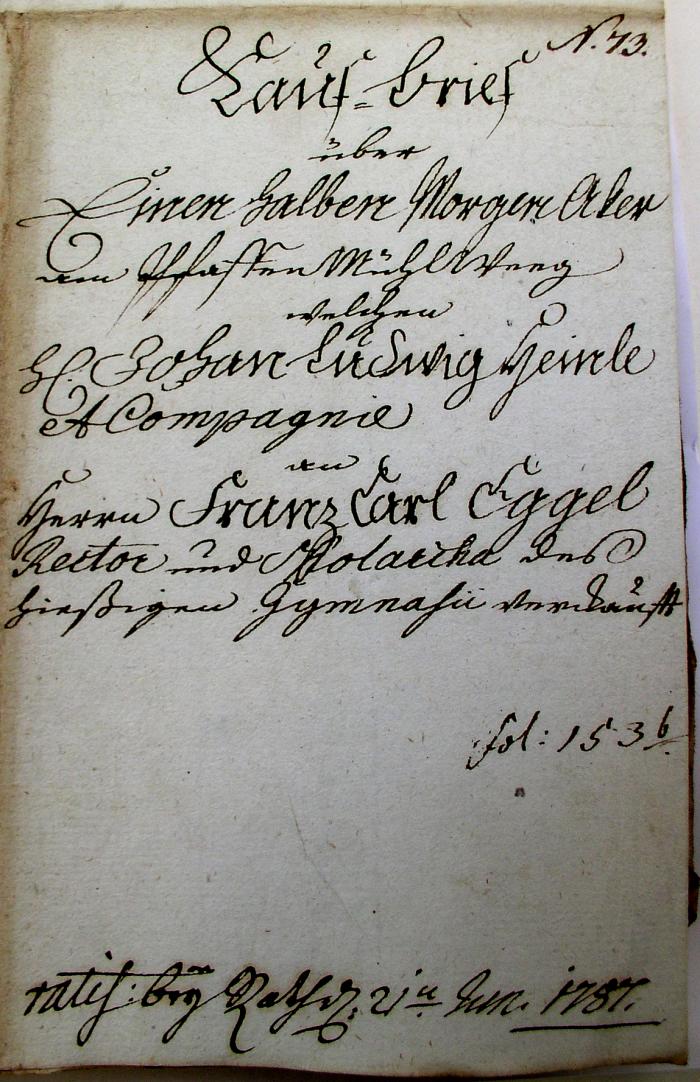 N. 73.
Kauf=brief
über
Einen halben Morgen Aker
am Pfaffen Mühl Weeg
welchen
H. Johan Ludwig Heinle
et Compagnie
an
Herrn Franz Carl Eggel
Rector und Scholarcha des
hießigen Gymnasii verkauft
fol: 153 b
ratif: bey Rath d. 21n Jun. 1787.